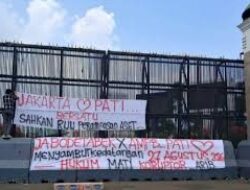 JAKARTA ♡ PATI
BERSATU
SAHKAN RUU PERAMPASAN ASET
JABODETABEK X AMPB PATI ♡
MENYAMBUT KEDATANGAN 27 AGUSTUS
HUKUM MATI KORUPTOR